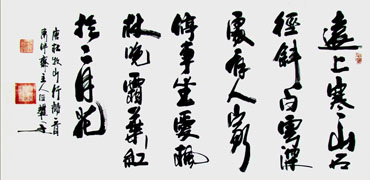 遠上寒山石
徑斜白雲深
處有人家
停車坐愛楓
林晚霜葉紅
於二月花
唐杜牧山行詩一首
主人